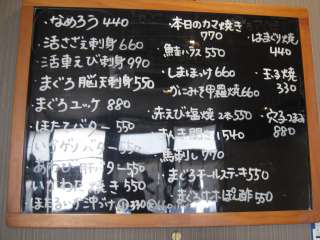 なめろう 440
活さざえ刺身 660
活車えび刺身 990
まぐろ脳天刺身 550
まぐろユッケ 880
ほたてバター 550
バター 550
バター 550
焼き 550
ほたるいか沖づけ 330
本日のカマ焼き
770
鮭ハラス 550
しまほっけ 660
かにみそ甲羅焼 660
赤えび塩焼 2本 550
1540
馬刺し 770
まぐろテールステーキ 550
ポン酢 550
はまぐり焼
440
玉子焼
330
880